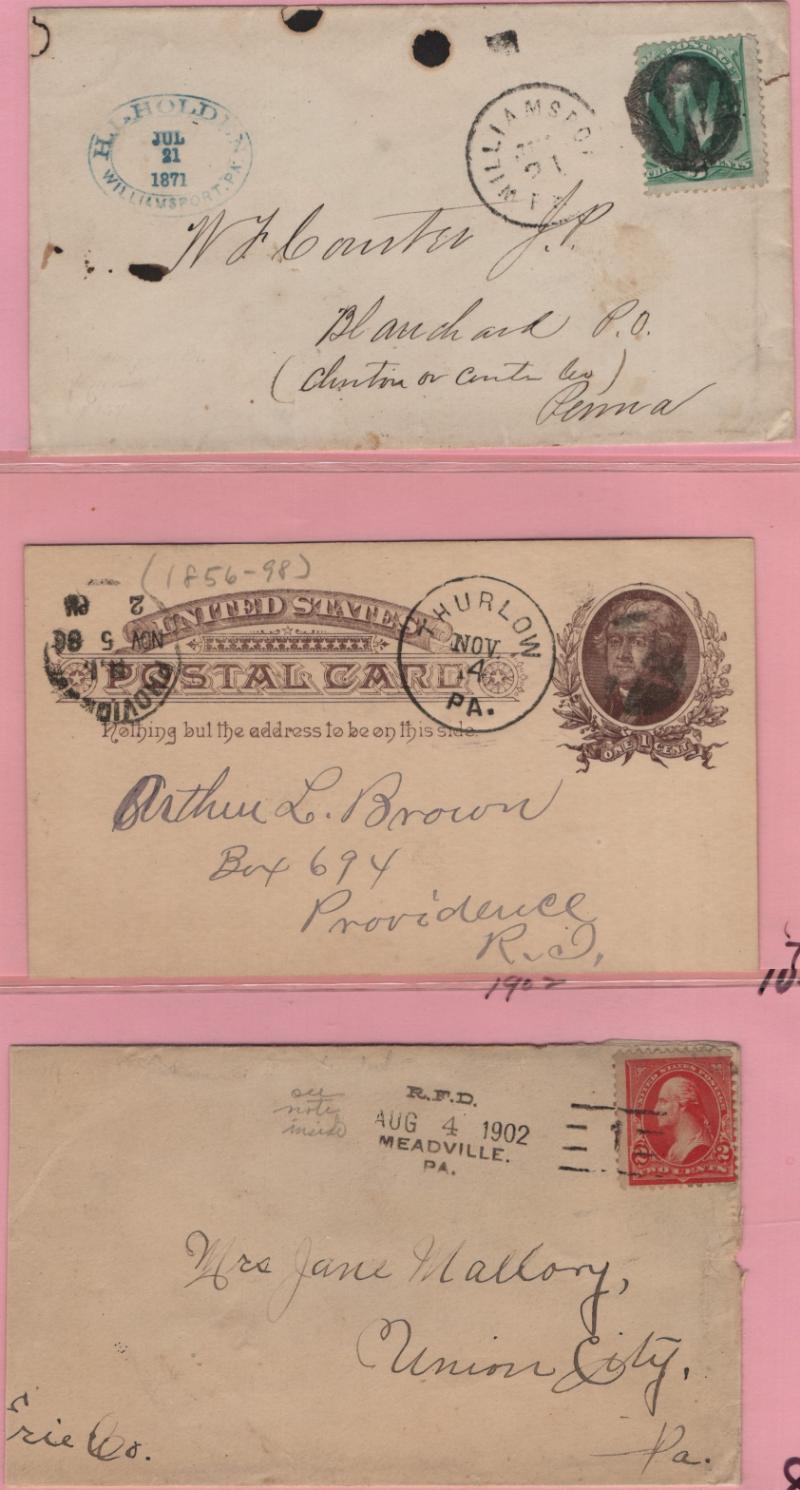 H. L. HOLDEN
JUL
21
1871
WILLIAMSPORT, PA
WILLIAMSPO
21
PA
POSTAGE
W
CENTS
W F Courter J.P.
Blanchard P.O.
(Clinton or Centre Co)
Penna
(1856-98)
2 PM
NOV 5 86
R.I.
PROVID
UNITED STATES
POSTAL CARD
Nothing but the address to be on this side.
THURLOW
NOV.
4
PA.
ONE 1 CENT
Arthur L. Brown
Box 694
Providence
R.I.
1902
see
note
inside
R.F.D.
AUG 4 1902
MEADVILLE.
PA.
1
UNITED STATES POSTAGE
2 2
TWO CENTS
Mrs Jane Mallory,
Union City,
Erie Co.
Pa.